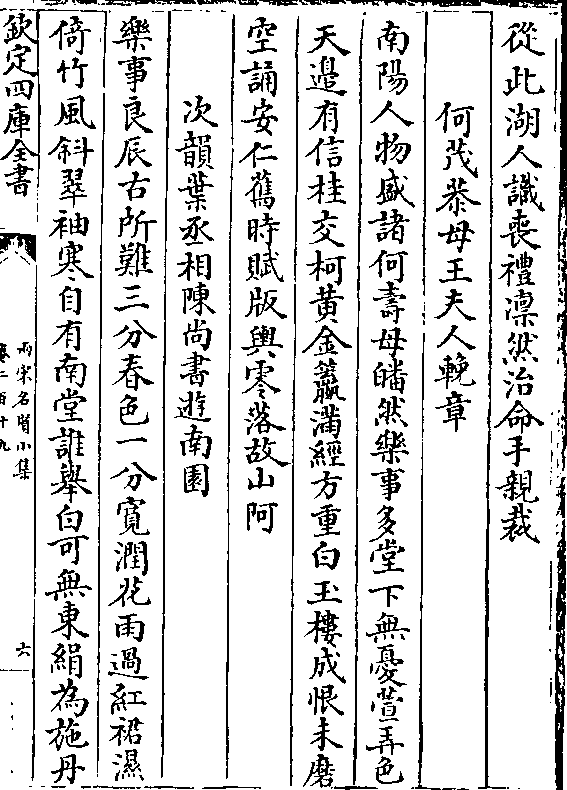 從此湖人識喪禮凛然治命手親裁
何茂恭母王夫人輓章
南陽人物盛諸何壽母皤然樂事多堂下無憂萱弄色
天邉有信桂交柯黄金籯滿經方重白玉樓成恨未磨
空誦安仁舊時賦版輿零落故山阿
次韻葉丞相陳尚書遊南園
樂事良辰古所難三分春色一分寛潤花雨過紅裙濕
倚竹風斜翠袖寒自有南堂誰舉白可無東絹為施丹
欽定四庫全書
兩宋名賢小集
卷二百十九
六